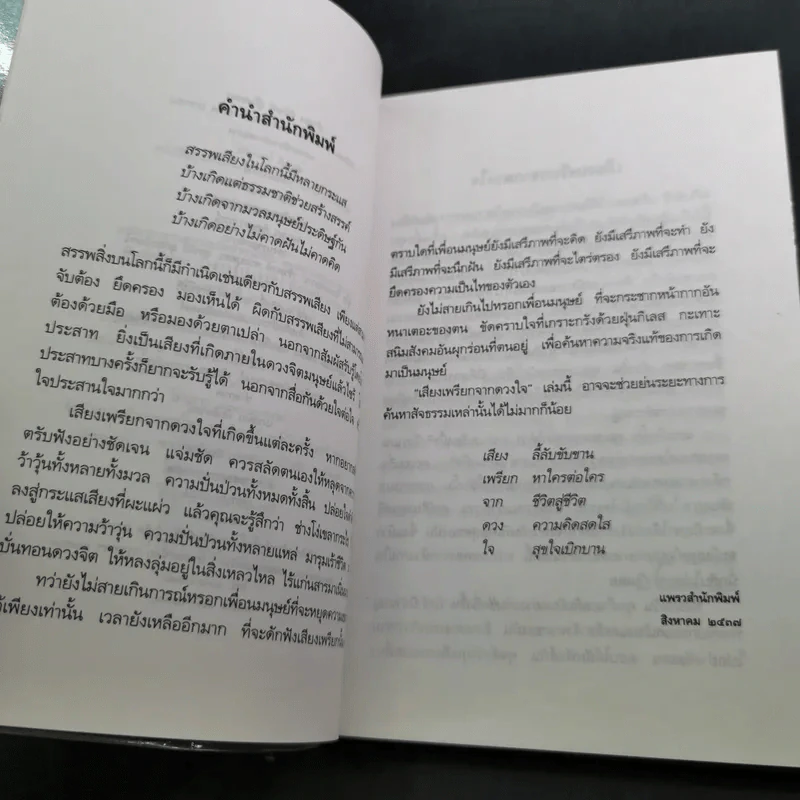 คำนำสำนักพิมพ์
สรรพเสียงในโลกนี้มีหลายกระแส
บ้างเกิดแต่ธรรมชาติช่วยสร้างสรรค์
บ้างเกิดจากมวลมนุษย์ประดิษฐ์กัน
บ้างเกิดอย่างไม่คาดฝันไม่คาดคิด
สรรพสิ่งบนโลกนี้ก็มีกำเนิดเช่นเดียวกับสรรพเสียง
จับต้อง ยึดครอง มองเห็นได้ ผิดกับสรรพเสียงที่ไม่สามารถ
ต้องด้วยมือ หรือมองด้วยตาเปล่า นอกจากสัมผัสรับรู้
ประสาท ยิ่งเป็นเสียงที่เกิดภายในดวงจิตมนุษย์แล้วไซร้
ประสาทบางครั้งก็ยากจะรับรู้ได้ นอกจากสื่อกันด้วยใจต่อใจ
ใจประสานใจมากกว่า
เสียงเพรียกจากดวงใจที่เกิดขึ้นแต่ละครั้ง หากอยาก
ตรับฟังอย่างชัดเจน แจ่มชัด ควรสลัดตนเองให้หลุดจาก
ว้าวุ้นทั้งหลายทั้งมวล ความปั่นป่วนทั้งหมดทั้งสิ้น ปล่อยใจ
ลงสู่กระแสเสียงที่ผะแผ่ว แล้วคุณจะรู้สึกว่า ช่างโง่เขลา
ปล่อยให้ความว้าวุ่น ความปั่นป่วนทั้งหลายแหล่ มารุมเร้าชีวิต
บั่นทอนดวงจิต ให้หลงลุ่มอยู่ในสิ่งเหลวไหล ไร้แก่นสาร
ทว่ายังไม่สายเกินการณ์หรอกเพื่อนมนุษย์ที่จะหยุดความ
เพียงเท่านั้น เวลายังเหลืออีกมาก ที่จะดักฟังเสียงเพรียก
ตราบใดที่เพื่อนมนุษย์ยังมีเสรีภาพที่จะคิด ยังมีเสรีภาพที่จะทำ ยัง
มีเสรีภาพที่จะนึกฝัน ยังมีเสรีภาพที่จะไตร่ตรอง ยังมีเสรีภาพที่จะ
ยึดครองความเป็นไทของตัวเอง
ยังไม่สายเกินไปหรอกเพื่อนมนุษย์ ที่จะกระชากหน้ากากอัน
หนาเตอะของตน ขัดคราบใจที่เกราะกรังด้วยฝุ่นกิเลส กะเทาะ
สนิมสังคมอันผุกร่อนที่ตนอยู่ เพื่อค้นหาความจริงแท้ของการเกิด
มาเป็นมนุษย์
“เสียงเพรียกจากดวงใจ” เล่มนี้ อาจจะช่วยย่นระยะทางการ
ค้นหาสัจธรรมเหล่านั้นได้ไม่มากก็น้อย
เสียง ลี้ลับขับขาน
เพรียก หาใครต่อใคร
จาก ชีวิตสู่ชีวิต
ดวง ความคิดสดใส
ใจ สุขใจเบิกบาน
แพรวสำนักพิมพ์
สิงหาคม ๒๕๓๗